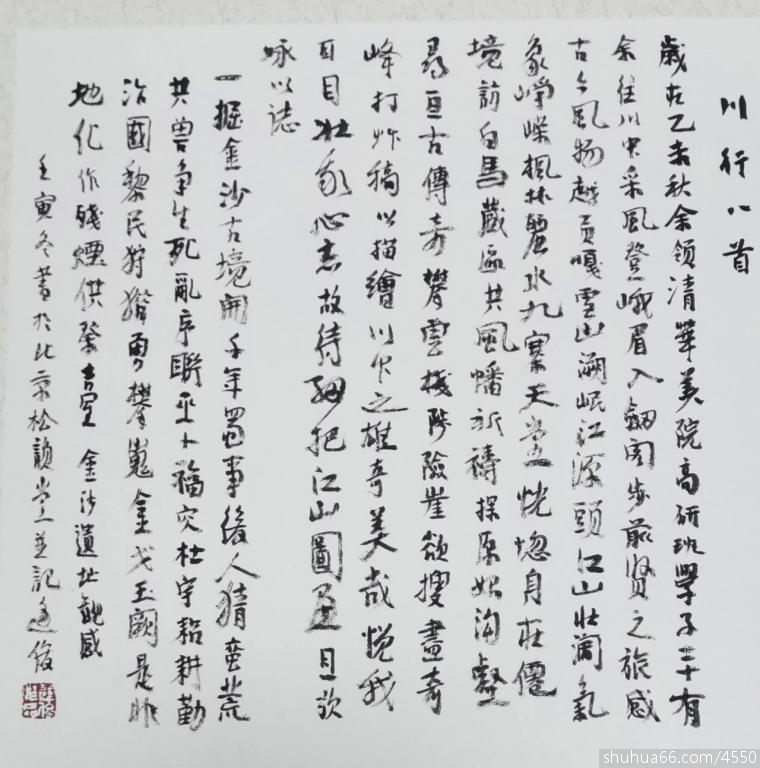 川行八首
歲在乙未秋余領清華美院高研班學子三十有
余往川中采風登峨眉入劍閣步前賢之旅感
古今風物越貢嘎雪山溯岷江源頭江山壯闊氣
象崢嶸楓林麗水九寨天堂恍惚身在僊
境訪白馬藏區共風幡祈禱探原始溝壑
尋亙古傳奇攀雲棧陟險崖欲搜盡奇
峰打草稿以描繪川作之雄奇美哉悅我
耳目壯我心志故待細把江山圖畫且歌
咏以誌
一掘金沙古境開千年蜀事後人猜蠻荒
共獸爭生死亂序聯巫卜福灾杜宇稻耕勤
治國黎民狩獵勇攀嵬金戈玉闕是非
地化作殘煙供發 金沙遺址觀感
壬寅冬書於北京松韻堂並記逢俊
shuhua66.com/4550